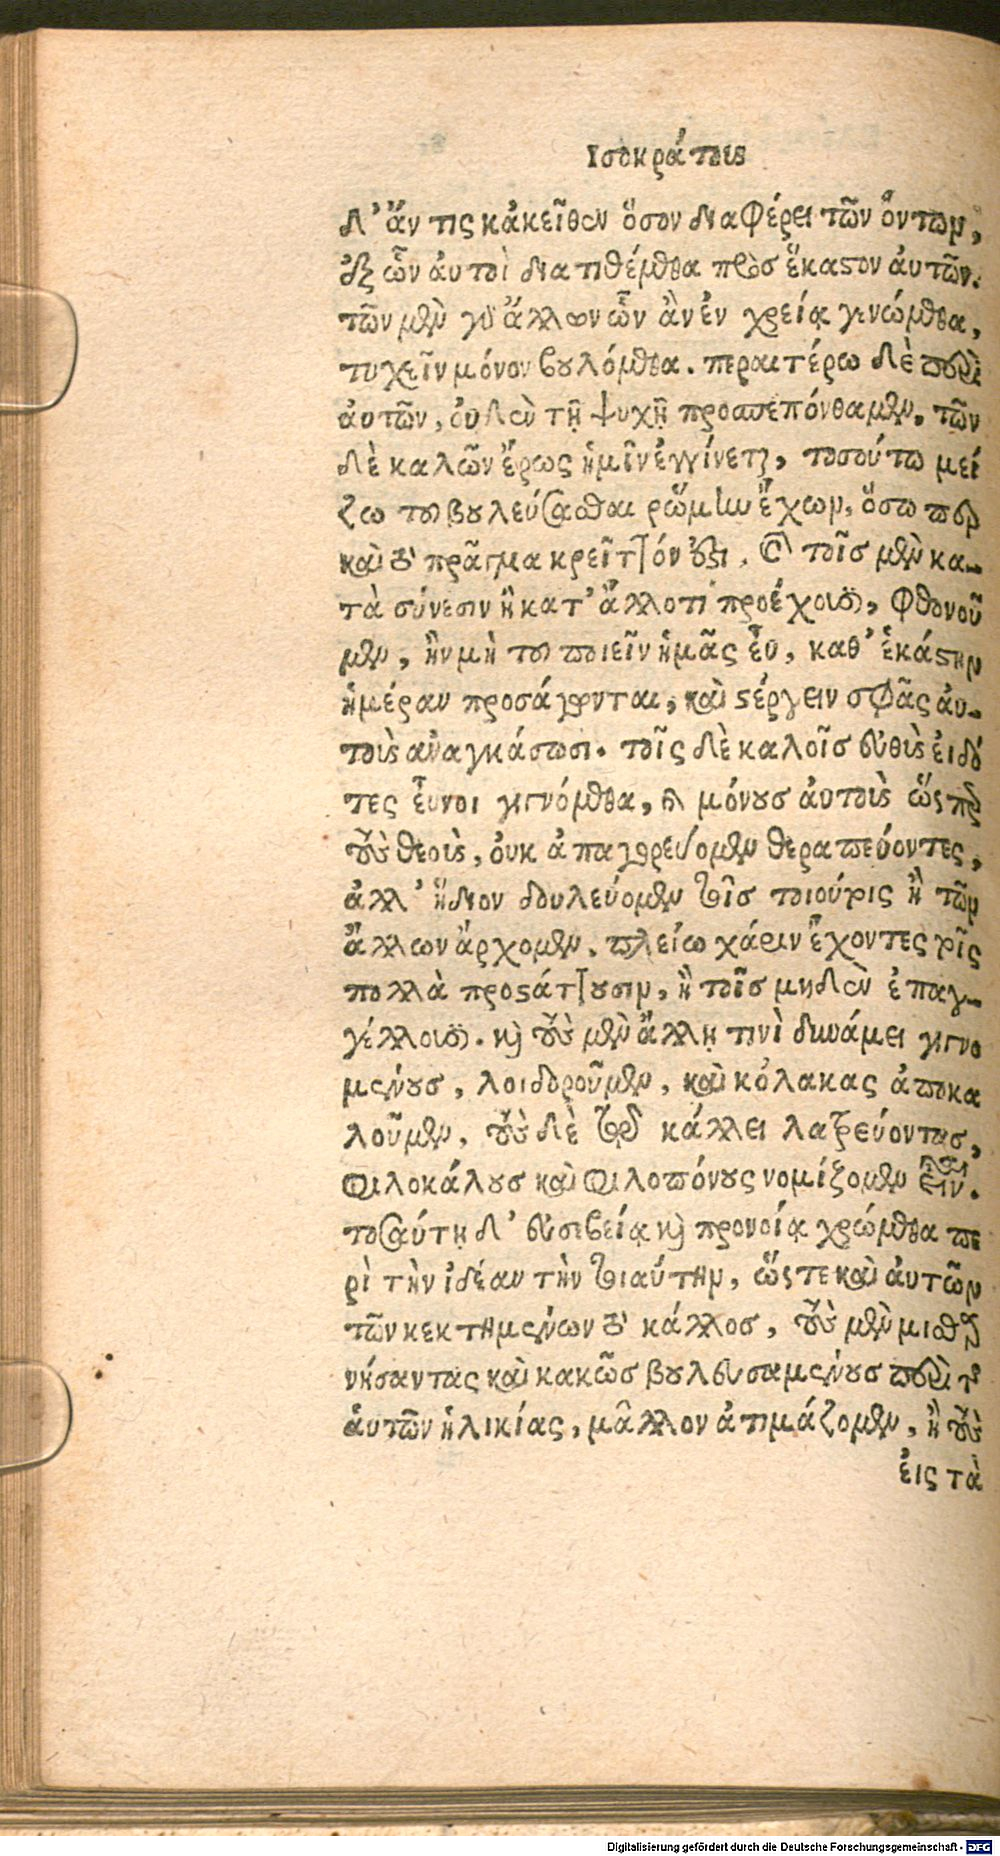 Ισοκράτους
δ' ἄν τις κἀκεῖθεν ὅσον διαφέρει τῶν ὄντων,
ἐξ ὧν αὐτοὶ διατιθέμεθα πρὸς ἕκαστον αὐτῶν.
τῶν μὲν γὸ ἄλλων ὧν ἂν ἐν χρείᾳ γινώμεθα,
τυχεῖν μόνον βουλόμεθα. περαιτέρω δὲ περὶ
αὐτῶν, οὐδὲν τῇ ψυχῇ προσπεπόνθαμεν. τῶν
δὲ καλῶν ἔρως ἡμῖν ἐγγίνεται, τοσούτω μεί
ζω τοῦ βουλεύσασθαι ῥώμην ἔχων, ὅσω περ
καὶ τὸ πρᾶγμα κρεῖττόν ἐστι. καὶ τοῖς μὲν κα-
τὰ σύνεσιν ἢ κατ' ἄλλο τι προέχουσι, φθονοῦ
μεν, ἢν μὴ τοῦ ποιεῖν ἡμᾶς εὖ, καθ' ἑκάστην
ἡμέραν προσάγωνται, καὶ στέργειν σφᾶς αὐ-
τοὺς ἀναγκάσωσι. τοῖς δὲ καλοῖς εὐθὺς εἰδό
τες εὖνοι γιγνόμεθα, καὶ μόνους αὐτοὺς ὥςπερ
τοὺς θεοὺς, οὐκ ἀπαγορεύομεν θεραπεύοντες,
ἀλλ' ἥδιον δουλεύομεν τοῖς τοιούτοις ἢ τῶν
ἄλλων ἄρχομεν. πλείω χάριν ἔχοντες τοῖς
πολλὰ προστάττουσιν, ἢ τοῖς μηδὲν ἐπαγ-
γέλλουσι. καὶ τοὺς μὲν ἄλλῃ τινὶ δυνάμει γιγνο
μένους, λοιδοροῦμεν, καὶ κόλακας ἀποκα
λοῦμεν, τοὺς δὲ τῷ κάλλει λατρεύοντας,
φιλοκάλους καὶ φιλοπόνους νομίζομεν εἶναι.
τοσαύτῃ δ' εὐσεβείᾳ καὶ προνοίᾳ χρώμεθα πε
ρὶ τὴν ἰδέαν τὴν τοιαύτην, ὥςτε καὶ αὐτῶν
τῶν κεκτημένων τὸ κάλλος, τοὺς μὲν μισθαρ
νήσαντας καὶ κακῶς βουλευσαμένους περὶ τῆς
αὑτῶν ἡλικίας, μᾶλλον ἀτιμάζομεν, ἢ τοὺς
εἰς τὰ
Digitalisierung gefördert durch die Deutsche Forschungsgemeinschaft - DFG